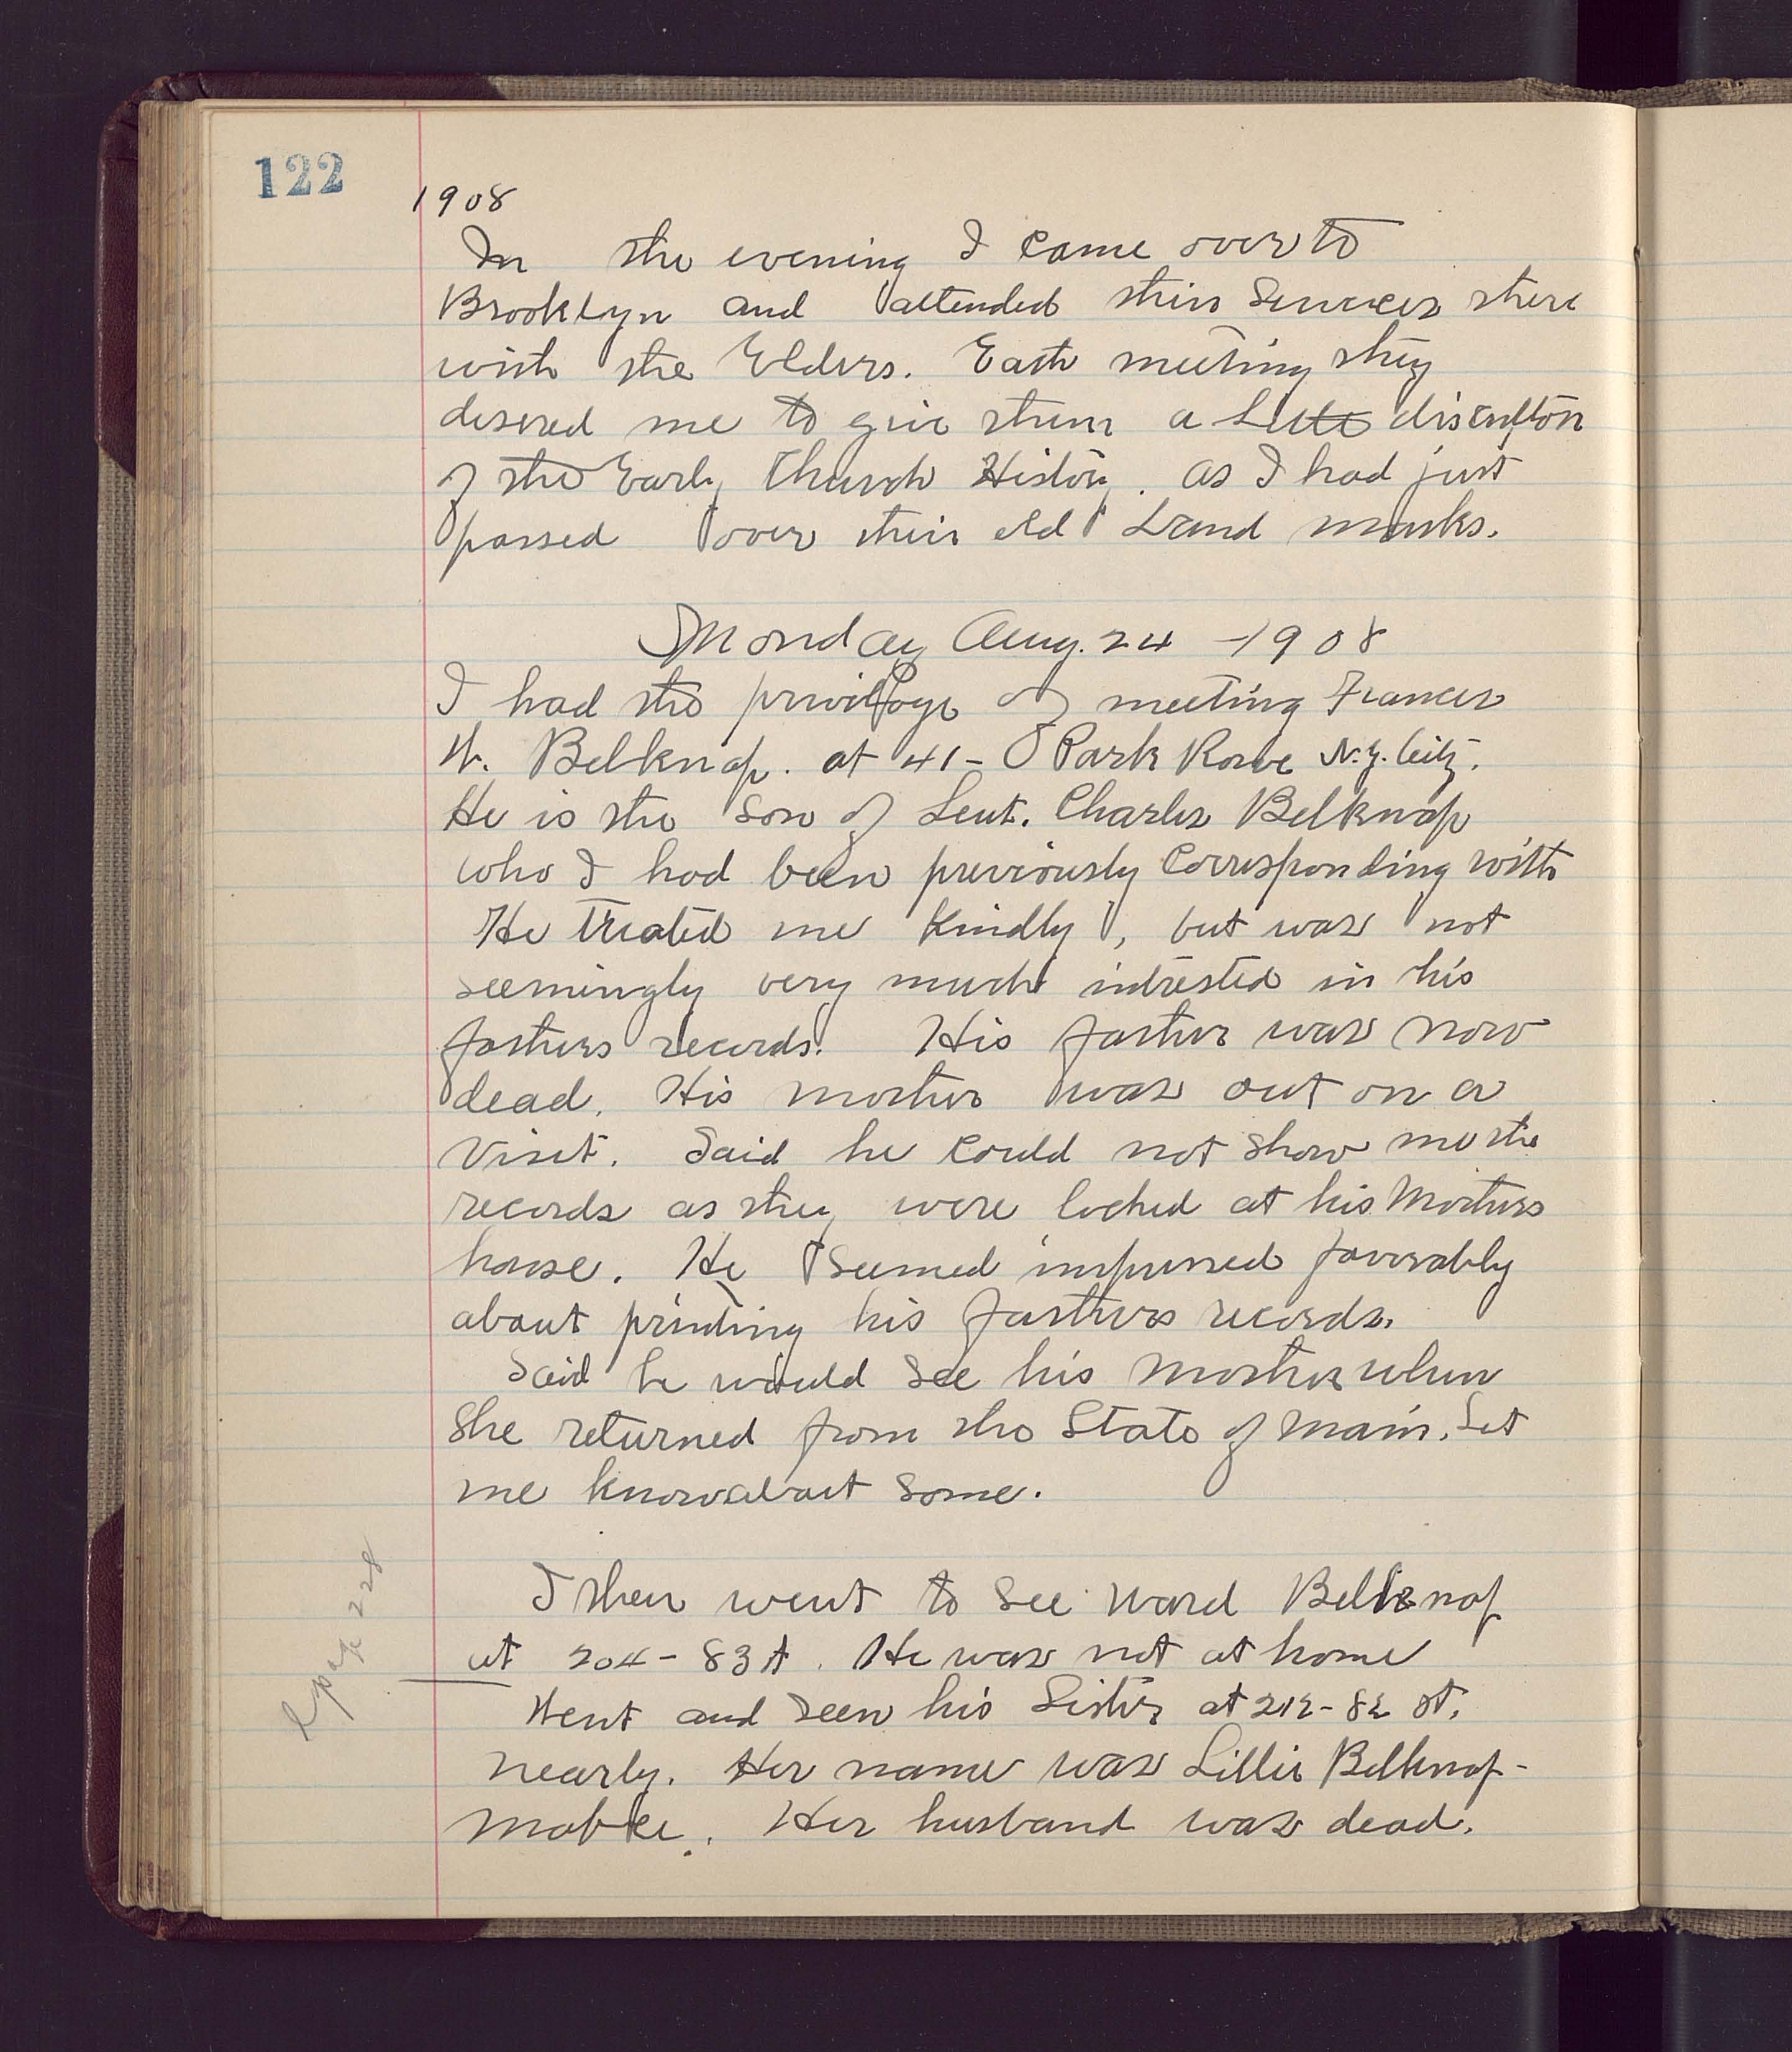 122
1908
In the evening I came over to
Brooklyn and attended their Services there
with the Elders. Each meeting they
desired me to give them a Little discription
of the Early Church History. as I had just
passed over their old Land marks.
Monday Aug. 24 - 1908
I had the privilage of meeting Frances
W. Belknap. at 41 - Park Rowe N.Y. City.
He is the son of Leut. Charles Belknap
who I had been previously Corresponding with
He treated me kindly, but was not
seemingly very much intrested in his
fathers records. His father was now
dead. His mother was out on a
visit. Said he could not show me the
records as they were locked at his Mothers
house. He seemed impressed favorably
about printing his fathers records.
Said he would see his Mother when
She returned from the State of Main. Let
me know about some.
I then went to see Ward Belknap
at 204 - 83 st. He was not at home
Went and seen his Sister at 212 - 82 st.
nearly. Her name was Lillie Belknap-
Her husband was dead.
page 228